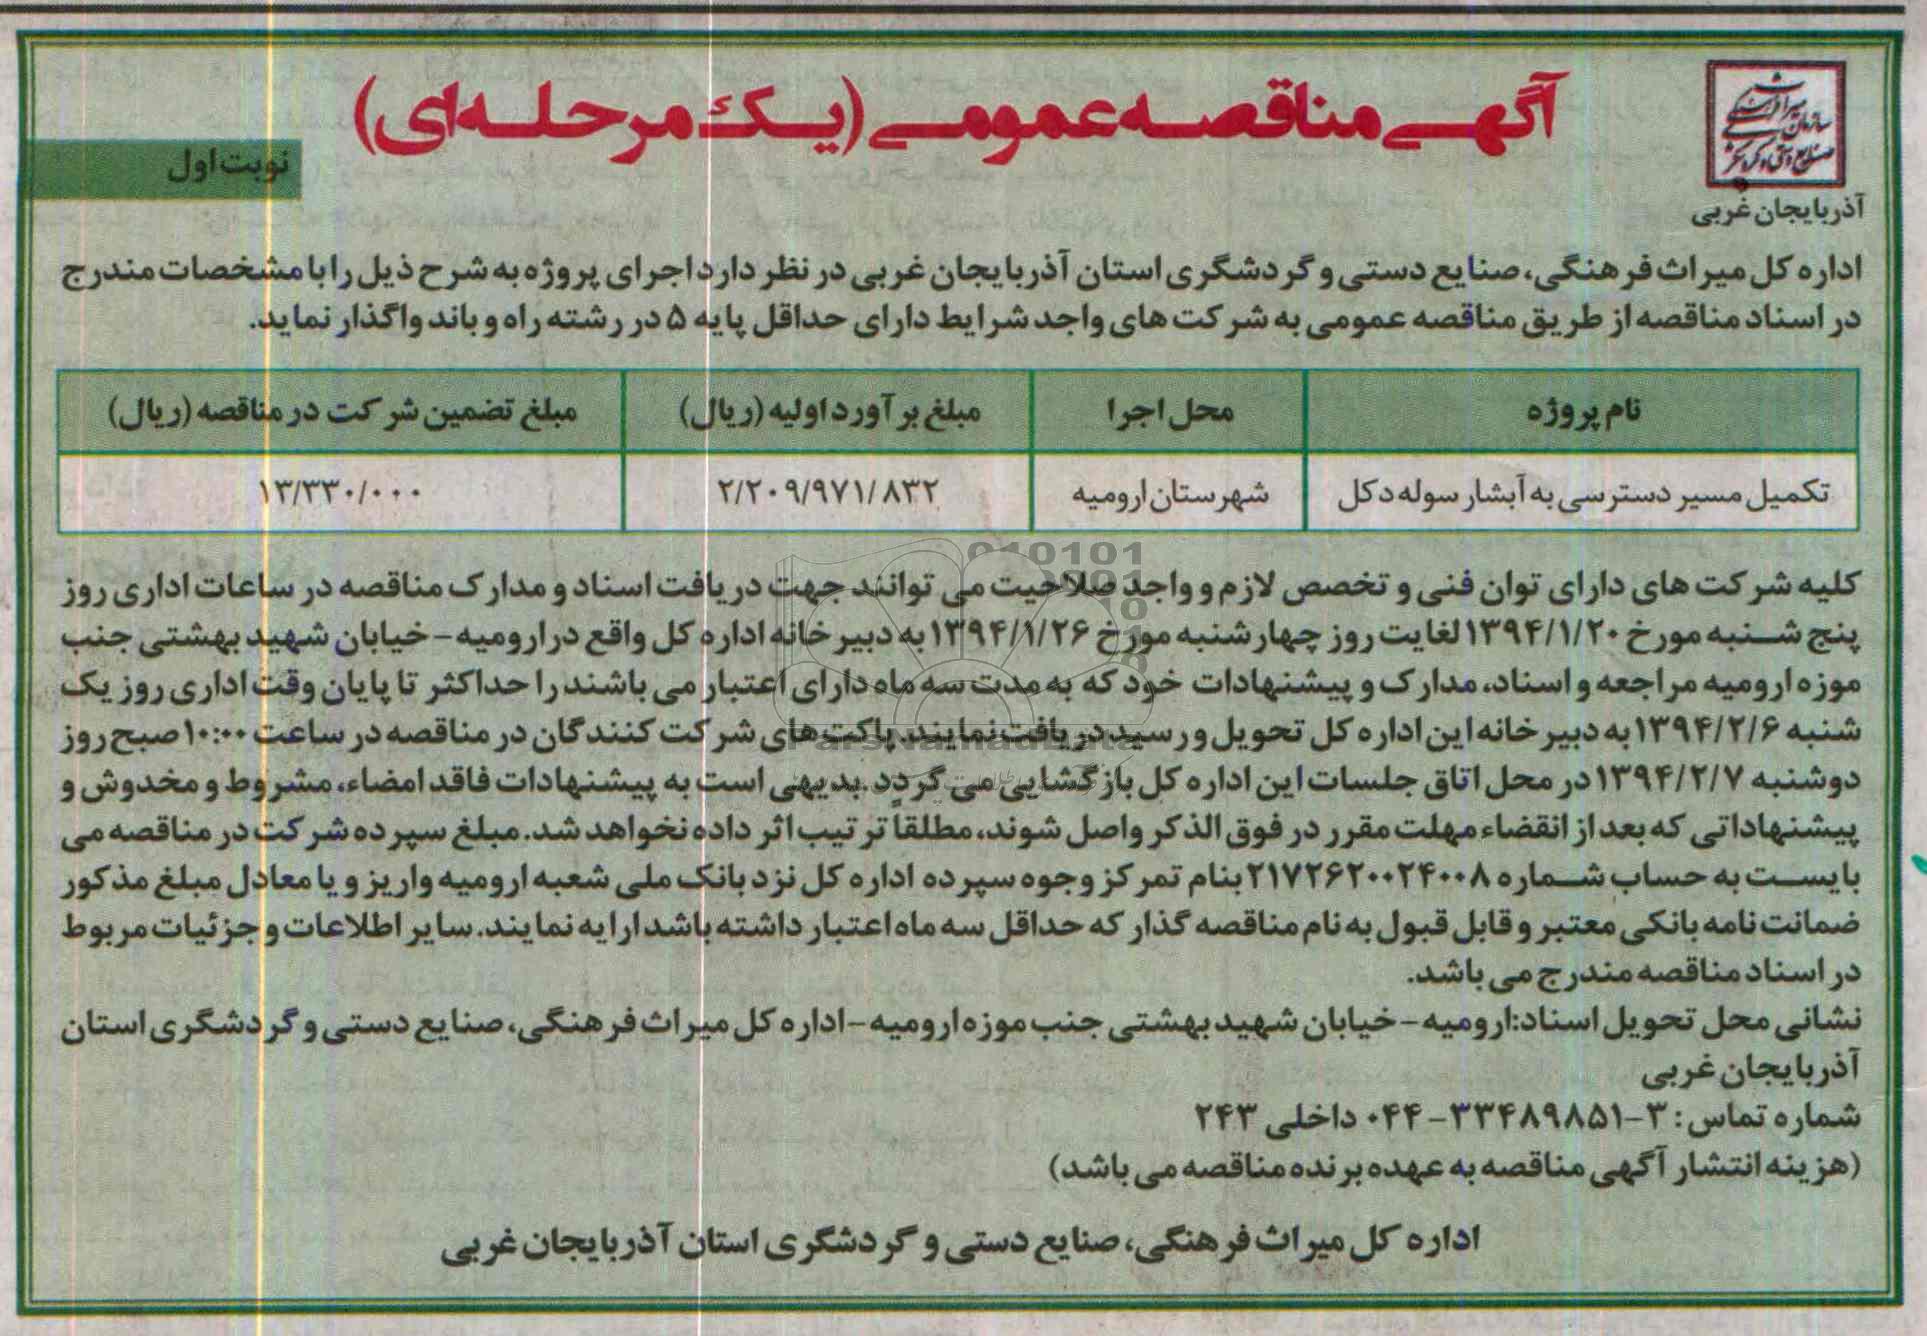 سازمان میراث فرهنگی
صنایع دستی و گردشگری
آذربایجان غربی
آگهی مناقصه عمومی (یک مرحله‌ای)
نوبت اول
اداره کل میراث فرهنگی، صنایع دستی و گردشگری استان آذربایجان غربی در نظر دارد اجرای پروژه به شرح ذیل را با مشخصات مندرج
در اسناد مناقصه از طریق مناقصه عمومی به شرکت های واجد شرایط دارای حداقل پایه ۵ در رشته راه و باند واگذار نماید.
نام پروژه	محل اجرا	مبلغ برآورد اولیه (ریال)	مبلغ تضمین شرکت در مناقصه (ریال)
تکمیل مسیر دسترسی به آبشار سوله دکل	شهرستان ارومیه	۲/۲۰۹/۹۷۱/۸۳۲	۱۳/۳۳۰/۰۰۰
کلیه شرکت های دارای توان فنی و تخصص لازم و واجد صلاحیت می توانند جهت دریافت اسناد و مدارک مناقصه در ساعات اداری روز
پنج شنبه مورخ ۱۳۹۴/۱/۲۰ لغایت روز چهارشنبه مورخ ۱۳۹۴/۱/۲۶ به دبیرخانه اداره کل واقع در ارومیه - خیابان شهید بهشتی جنب
موزه ارومیه مراجعه و اسناد، مدارک و پیشنهادات خود که به مدت سه ماه دارای اعتبار می باشند را حداکثر تا پایان وقت اداری روز یک
شنبه ۱۳۹۴/۲/۶ به دبیرخانه این اداره کل تحویل و رسید دریافت نمایند. پاکت های شرکت کنندگان در مناقصه در ساعت ۱۰:۰۰ صبح روز
دوشنبه ۱۳۹۴/۲/۷ در محل اتاق جلسات این اداره کل بازگشایی می گردد. بدیهی است به پیشنهادات فاقد امضاء، مشروط و مخدوش و
پیشنهاداتی که بعد از انقضاء مهلت مقرر در فوق الذکر واصل شوند، مطلقاً ترتیب اثر داده نخواهد شد. مبلغ سپرده شرکت در مناقصه می
بایست به حساب شماره ۲۱۷۲۶۲۰۰۲۴۰۰۸ بنام تمرکز وجوه سپرده اداره کل نزد بانک ملی شعبه ارومیه واریز و یا معادل مبلغ مذکور
ضمانت نامه بانکی معتبر و قابل قبول به نام مناقصه گذار که حداقل سه ماه اعتبار داشته باشد ارایه نمایند. سایر اطلاعات و جزئیات مربوط
در اسناد مناقصه مندرج می باشد.
نشانی محل تحویل اسناد: ارومیه - خیابان شهید بهشتی جنب موزه ارومیه - اداره کل میراث فرهنگی، صنایع دستی و گردشگری استان
آذربایجان غربی
شماره تماس: ۳-۳۳۴۸۹۸۵۱-۰۴۴ داخلی ۲۴۳
(هزینه انتشار آگهی مناقصه به عهده برنده مناقصه می باشد)
اداره کل میراث فرهنگی، صنایع دستی و گردشگری استان آذربایجان غربی
ParsNamadData